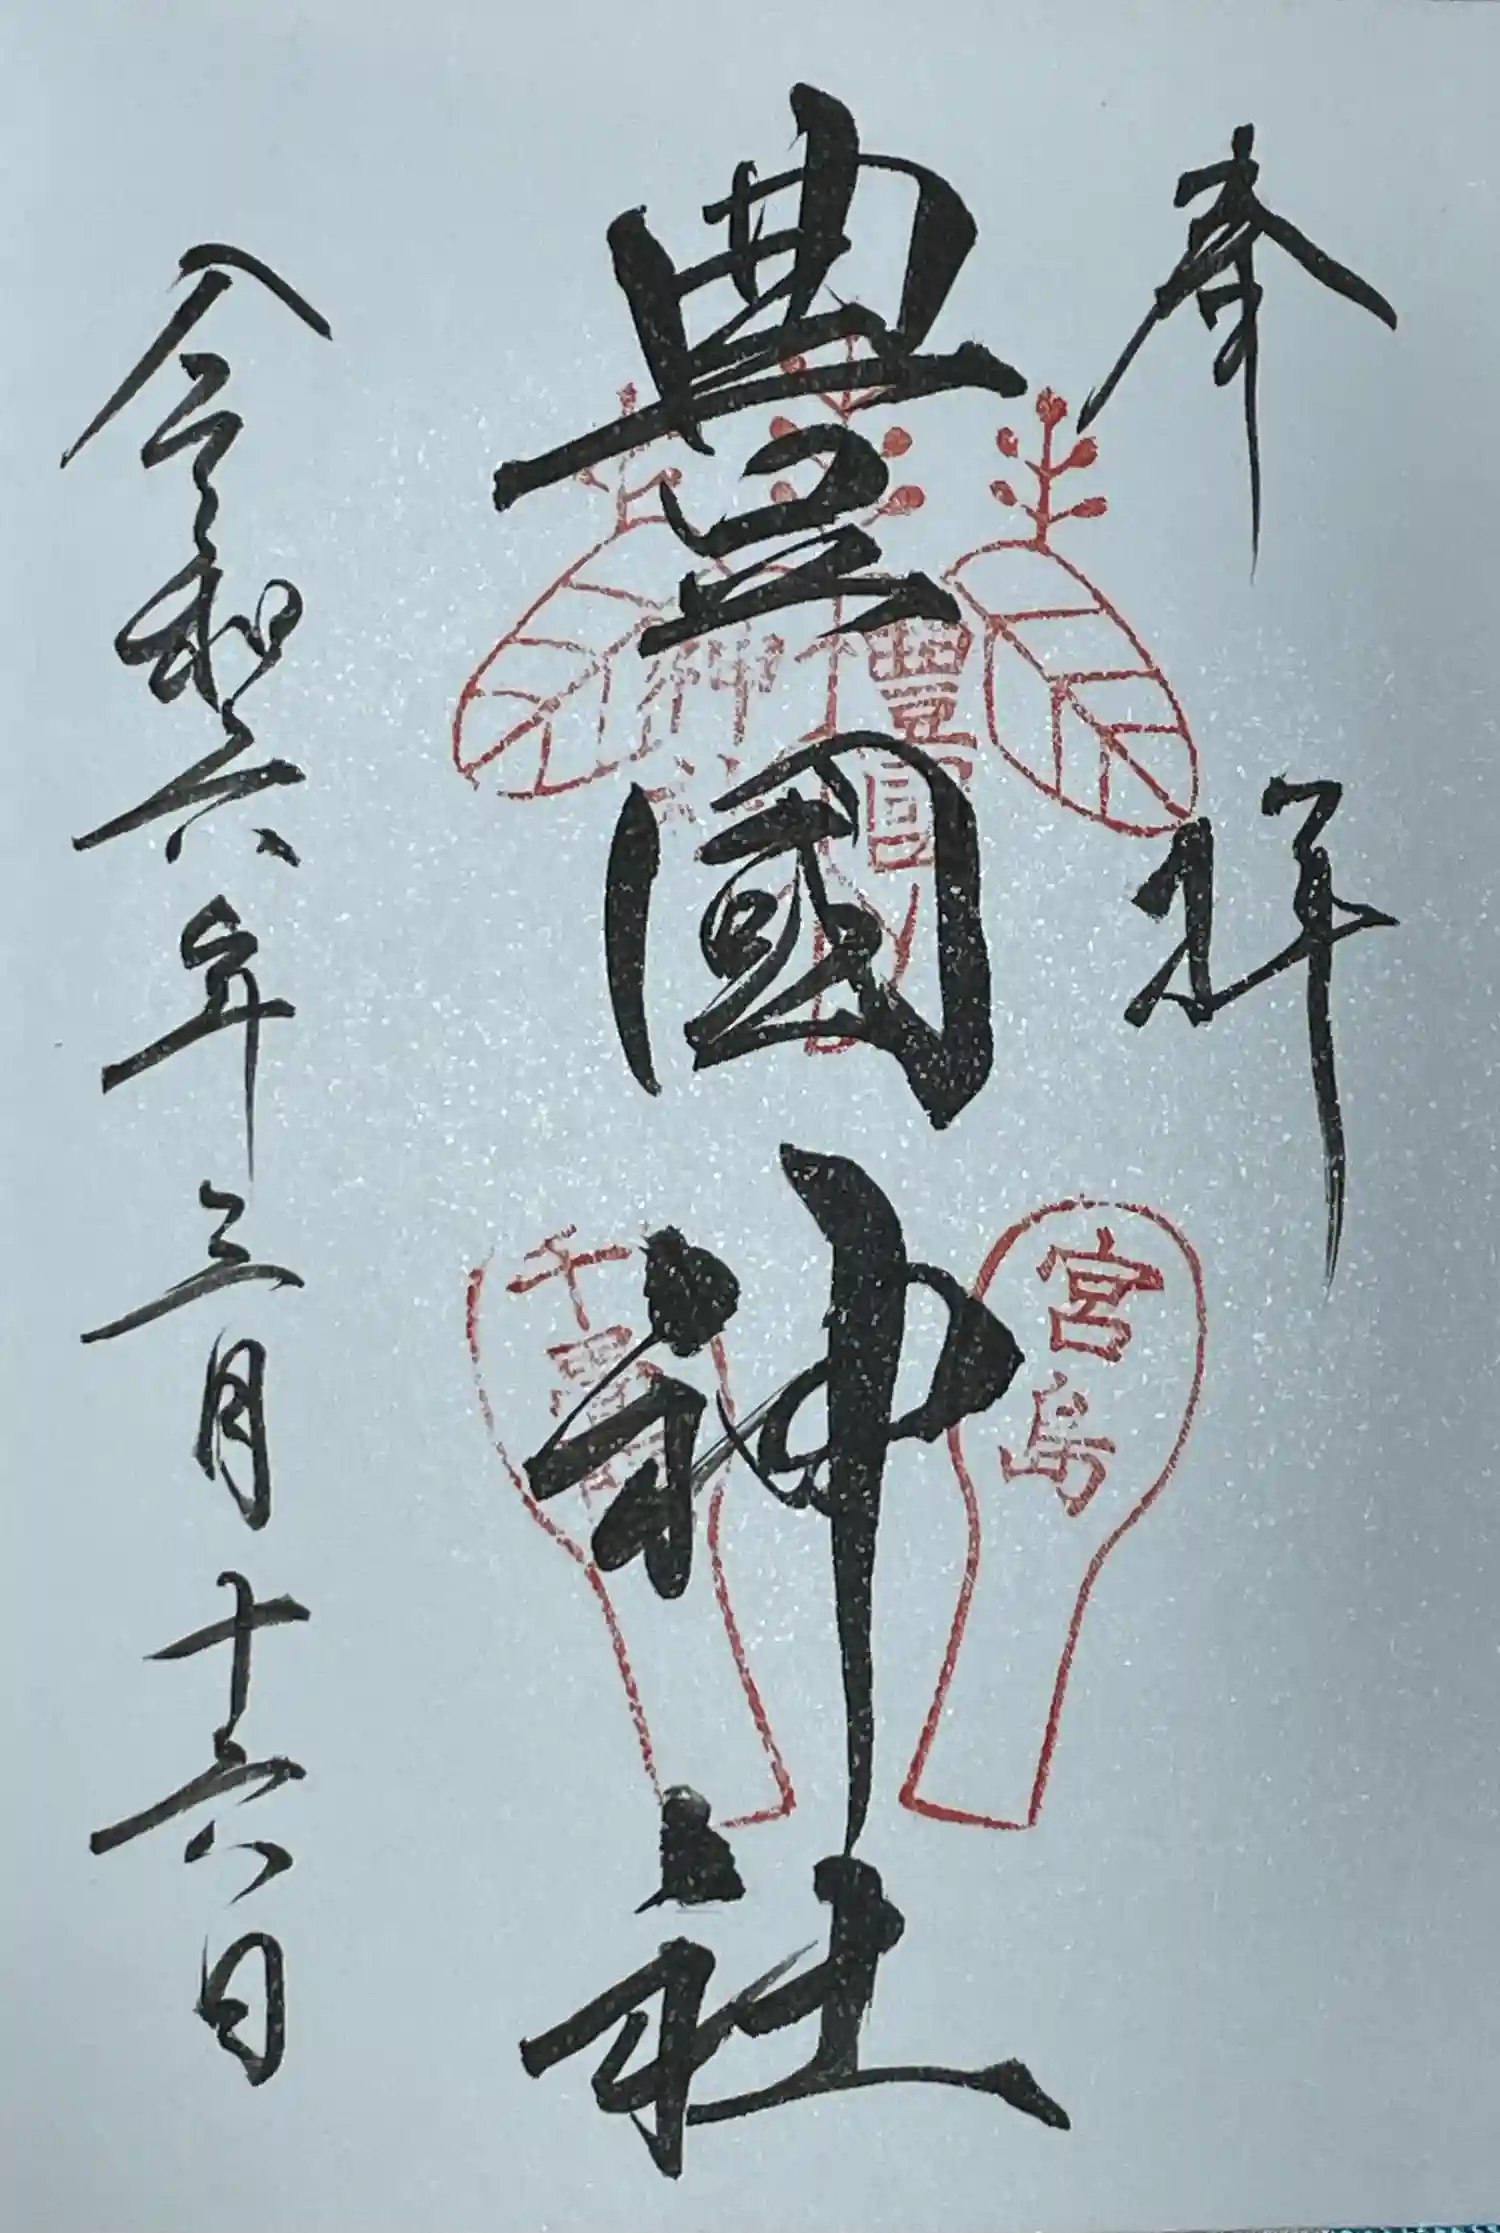 奉拝
豊國神社
令和六年三月十六日
豊國
神社
宮島
千畳閣